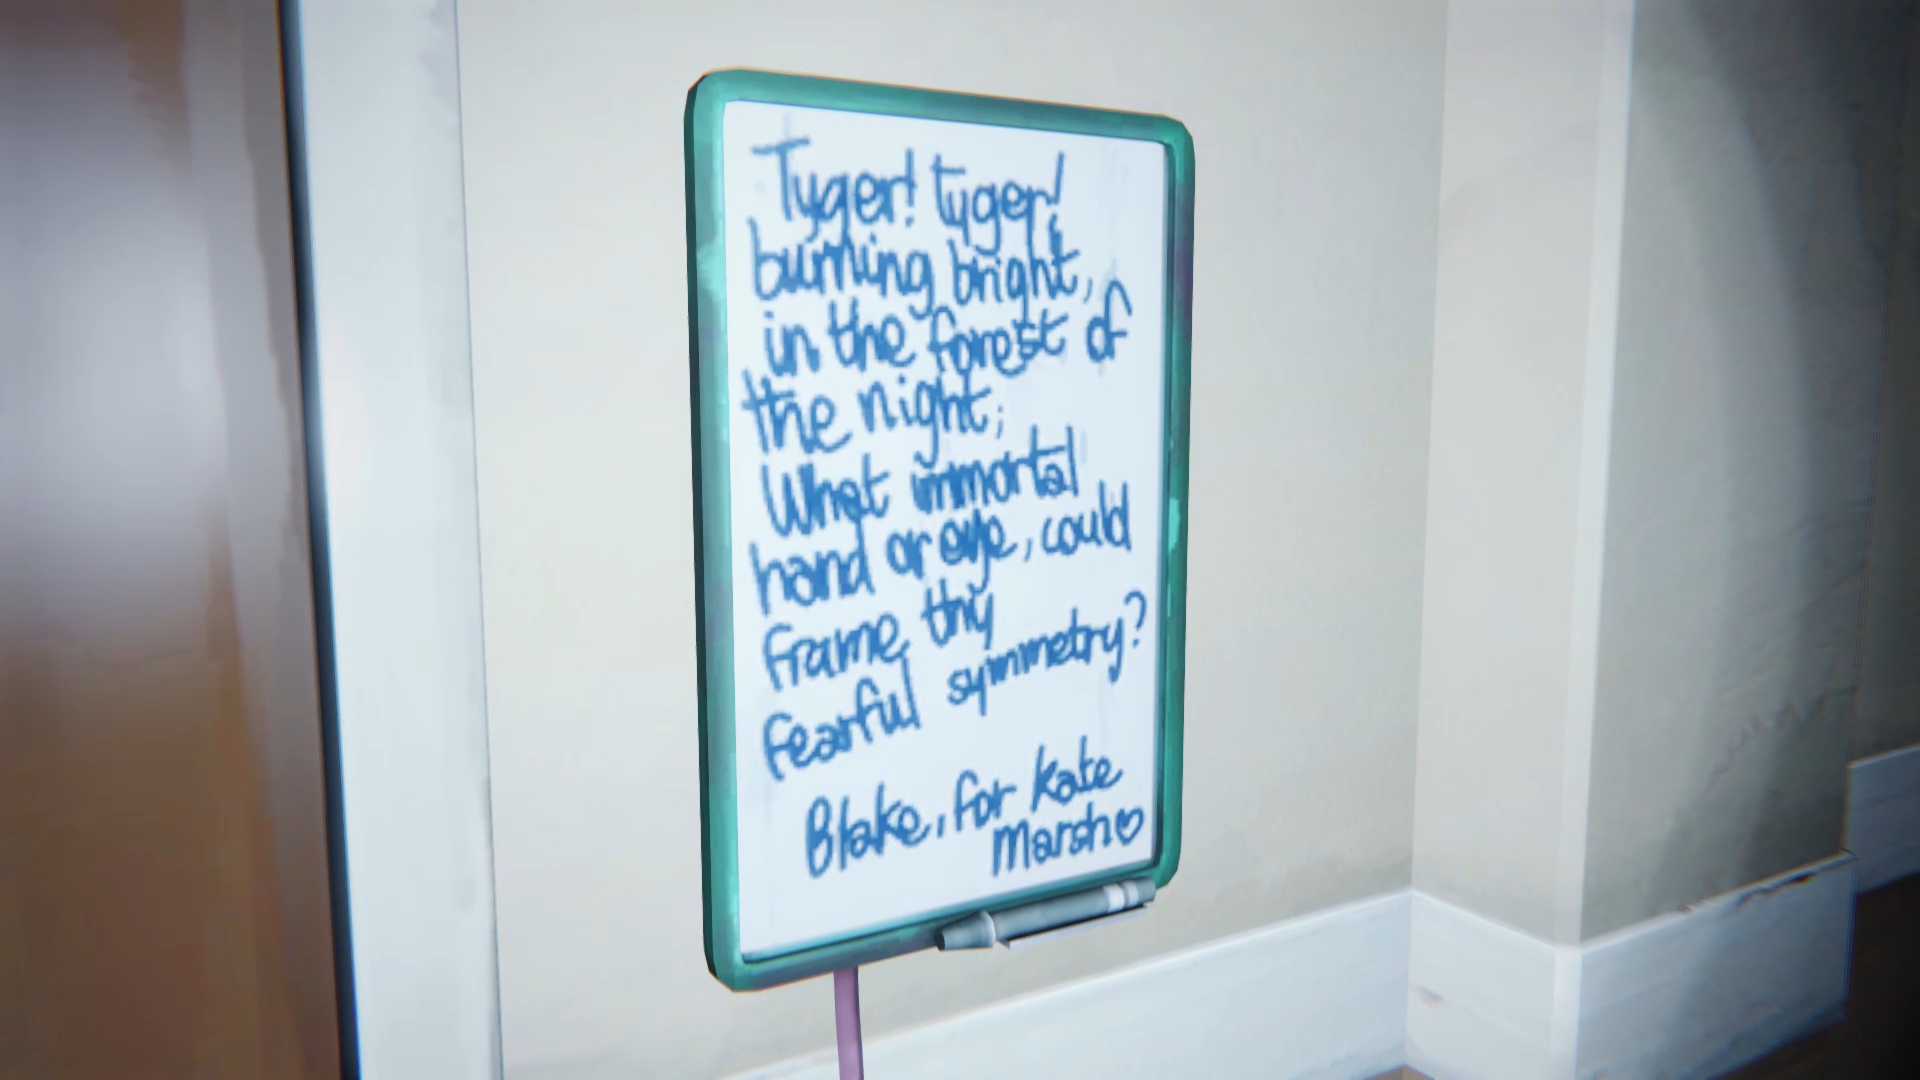 Tyger! Tyger!
burning bright,
in the forest of
the night;
What immortal
hand or eye, could
frame thy
fearful symmetry?
Blake, for Kate
Marsh♡